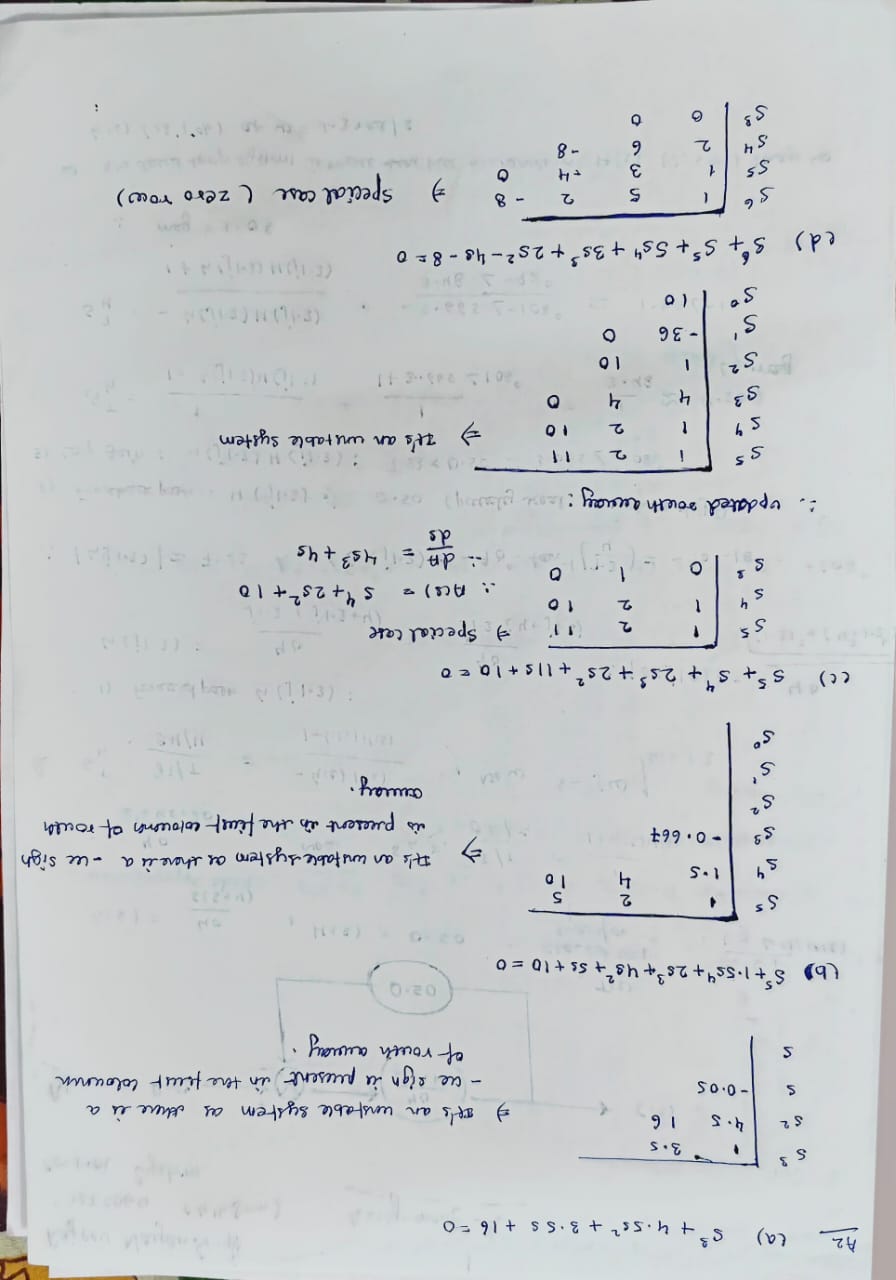 A2 (a) s³ + 4.5s² + 3.5s + 16 = 0
s³ 1 3.5
s² 4.5 16
s -0.05
s
⇒ It's an unstable system as there is a
-ve sign is present in the first coloumn
of routh array.
0.50
(b) s⁵ + 1.5s⁴ + 2s³ + 4s² + 5s + 10 = 0
s⁵ 1 2 5
s⁴ 1.5 4 10
s³ -0.667
s²
s¹
s⁰
⇒ It's an unstable system as there is a -ve sign
is present in the first coloumn of routh
array.
(c) s⁵ + s⁴ + 2s³ + 2s² + 11s + 10 = 0
s⁵ 1 2 11
s⁴ 1 2 10
s³ 0 1 0
⇒ Special case
∴ A(s) = s⁴ + 2s² + 10
∴ dA/ds = 4s³ + 4s
∴ updated routh array :
s⁵ 1 2 11
s⁴ 1 2 10
s³ 4 4 0
s² 1 10
s¹ -36 0
s⁰ 10
⇒ It's an unstable system
(d) s⁶ + s⁵ + 5s⁴ + 3s³ + 2s² - 4s - 8 = 0
s⁶ 1 5 2 -8
s⁵ 1 3 -4 0
s⁴ 2 6 -8
s³ 0 0
⇒ special case (zero row)